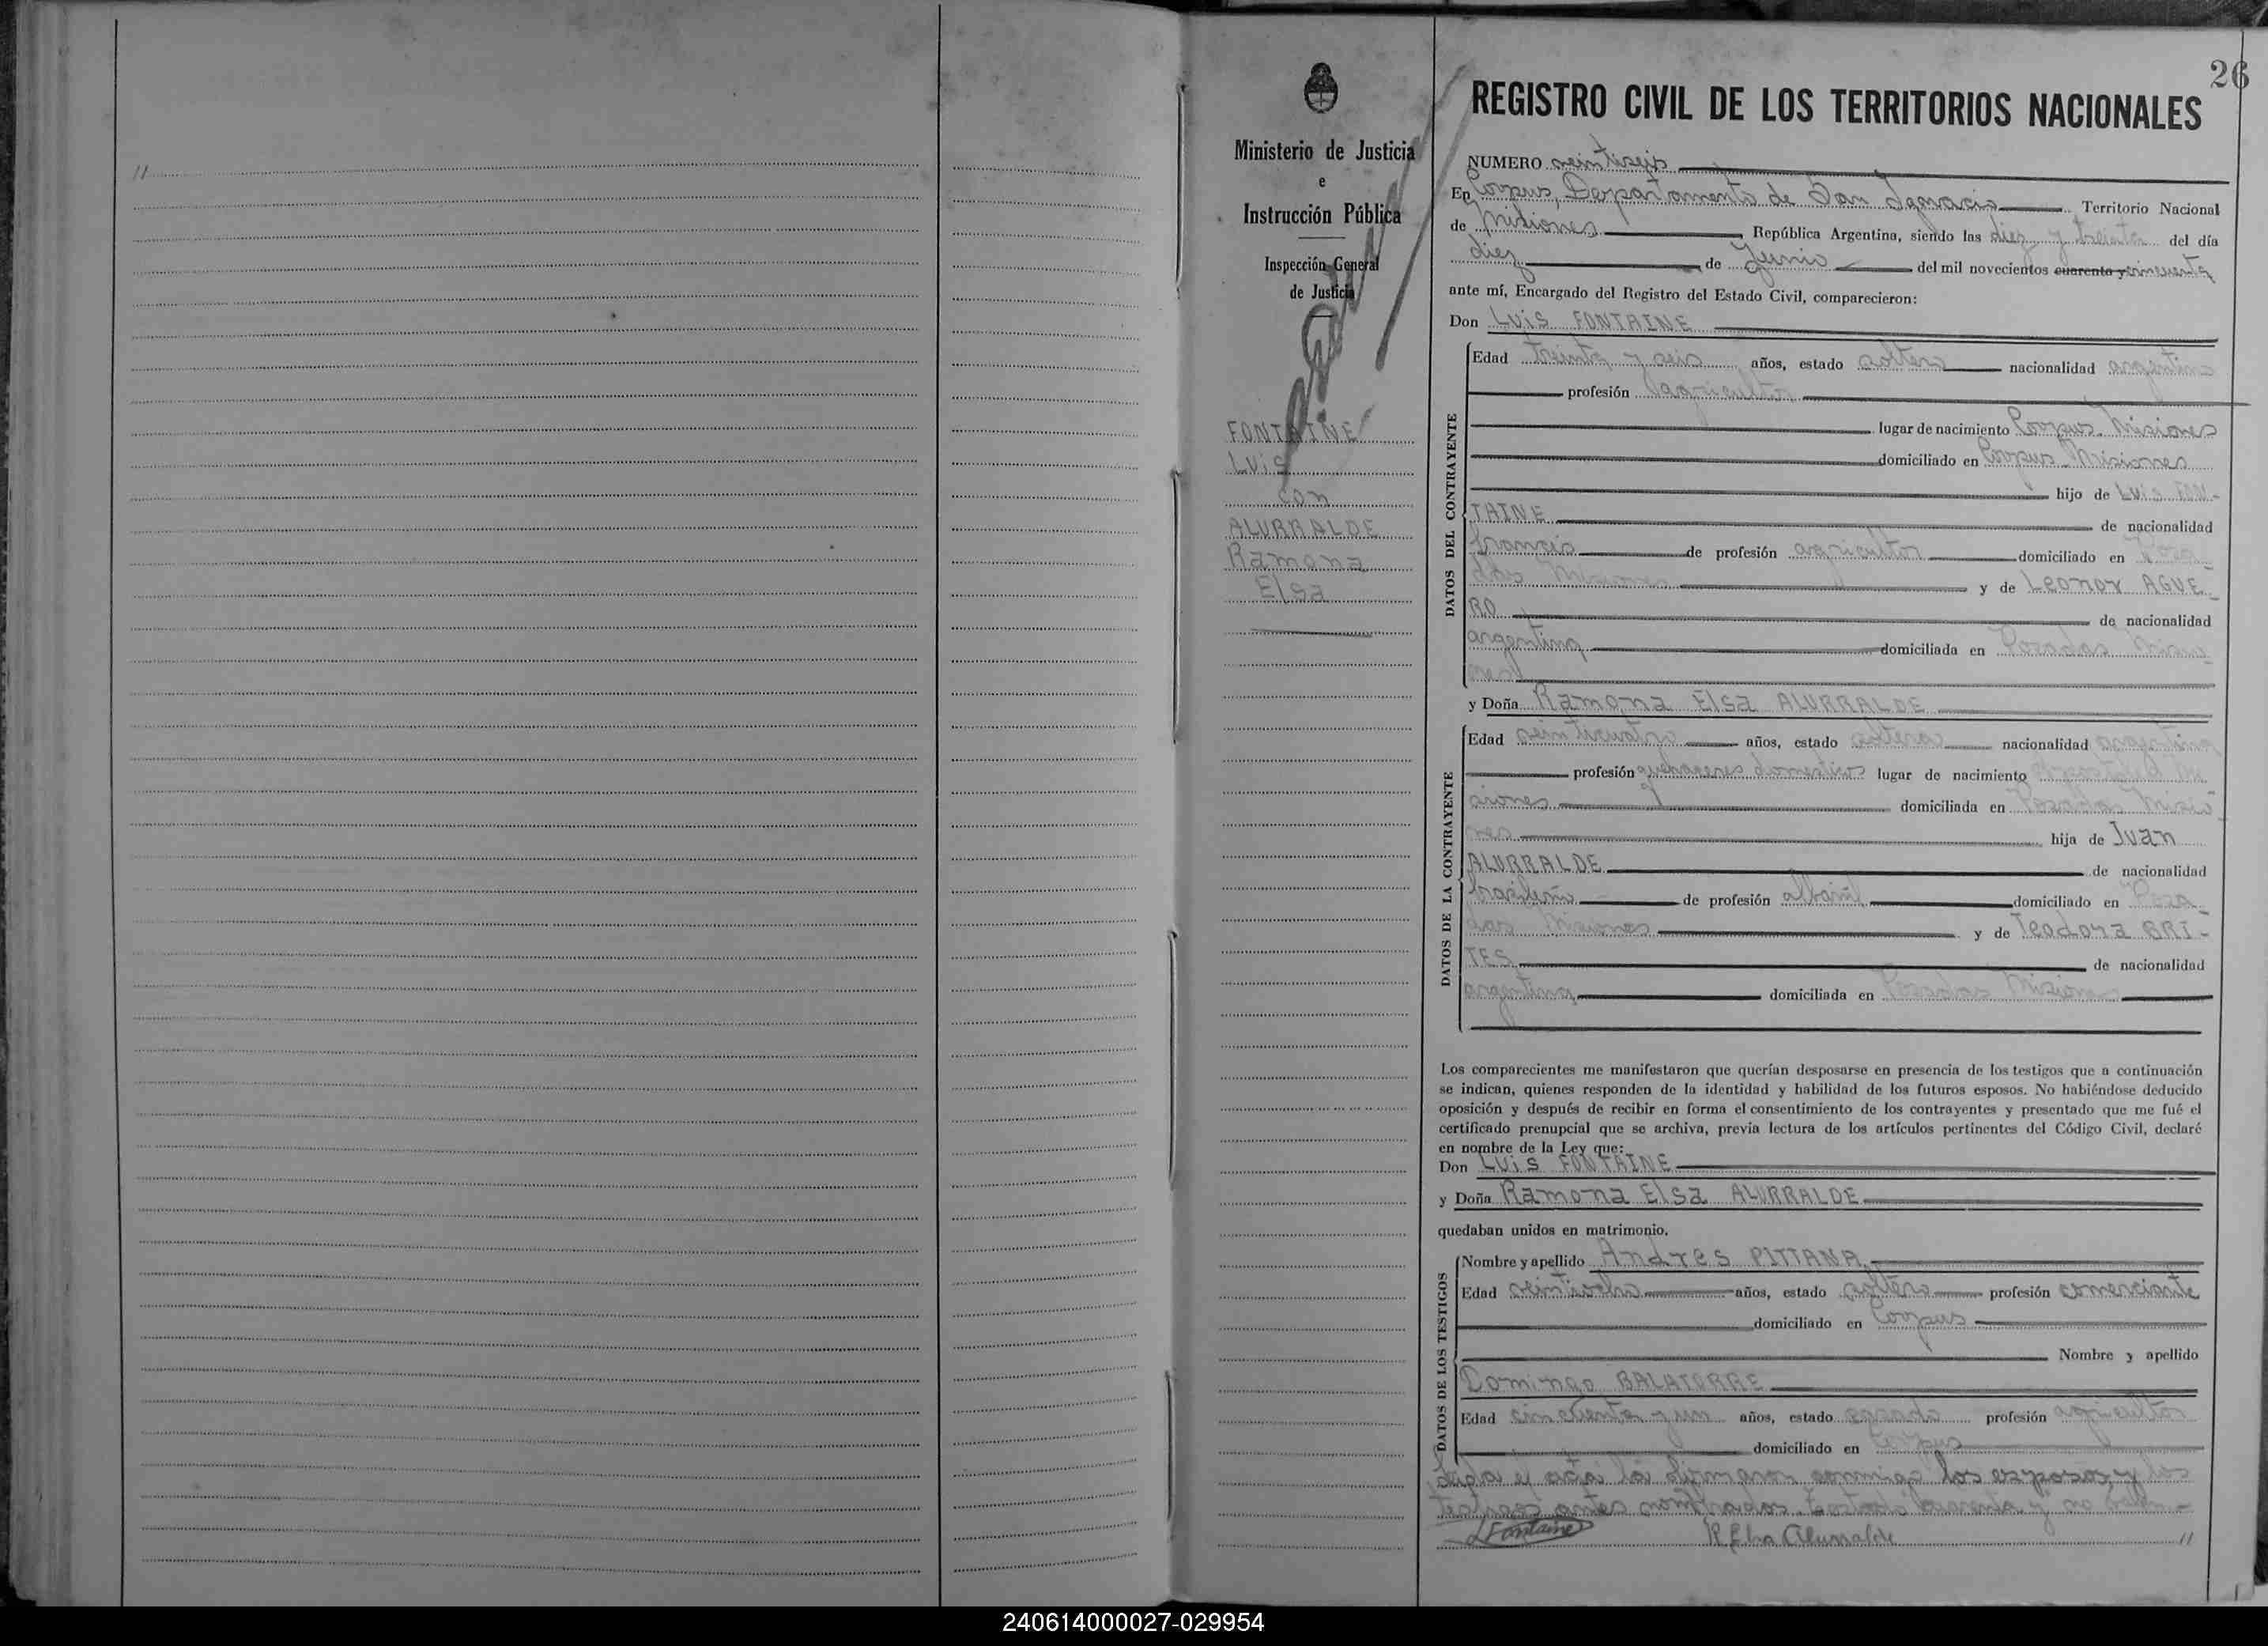 //
26
Ministerio de Justicia
e
Instrucción Pública
Inspección General
de Justicia
FONTAINE
Luis
con
ALURRALDE
Ramona
Elsa
REGISTRO CIVIL DE LOS TERRITORIOS NACIONALES
NUMERO veintiseis
En Corpus, Departamento de San Ignacio Territorio Nacional
de Misiones República Argentina, siendo las diez y treinta del día
diez de Junio del mil novecientos cuarenta y cincuenta
ante mí, Encargado del Registro del Estado Civil, comparecieron:
Don Luis FONTAINE
DATOS DEL CONTRAYENTE
Edad treinta y seis años, estado soltero nacionalidad argentino
profesión agricultor
lugar de nacimiento Corpus Misiones
domiciliado en Corpus Misiones
hijo de Luis FON-
TAINE de nacionalidad
francés de profesión agricultor domiciliado en Posa-
das Misiones y de Leonor AGUE-
RO de nacionalidad
argentina domiciliada en Posadas Misio-
nes
y Doña Ramona Elsa ALURRALDE
DATOS DE LA CONTRAYENTE
Edad veinticuatro años, estado soltera nacionalidad argentina
profesión quehaceres domésticos lugar de nacimiento Apóstoles Mi-
siones domiciliada en Posadas Misio-
nes hija de Juan
ALURRALDE de nacionalidad
brasileño de profesión albañil domiciliado en Posa-
das Misiones y de Teodora BRI-
TES de nacionalidad
argentina domiciliada en Posadas Misiones
Los comparecientes me manifestaron que querían desposarse en presencia de los testigos que a continuación
se indican, quienes responden de la identidad y habilidad de los futuros esposos. No habiéndose deducido
oposición y después de recibir en forma el consentimiento de los contrayentes y presentado que me fué el
certificado prenupcial que se archiva, previa lectura de los artículos pertinentes del Código Civil, declaré
en nombre de la Ley que:
Don Luis FONTAINE
y Doña Ramona Elsa ALURRALDE
quedaban unidos en matrimonio.
DATOS DE LOS TESTIGOS
Nombre y apellido Andres PITTANA
Edad veintiocho años, estado soltero profesión comerciante
domiciliado en Corpus
Nombre y apellido
Domingo BALATORRE
Edad cincuenta y un años, estado casado profesión agricultor
domiciliado en Corpus
Leída el acta la firmaron conmigo los esposos y los
testigos antes nombrados. Testado cuarenta y no vale.-
L Fontaine R Elsa Alurralde //
240614000027-029954